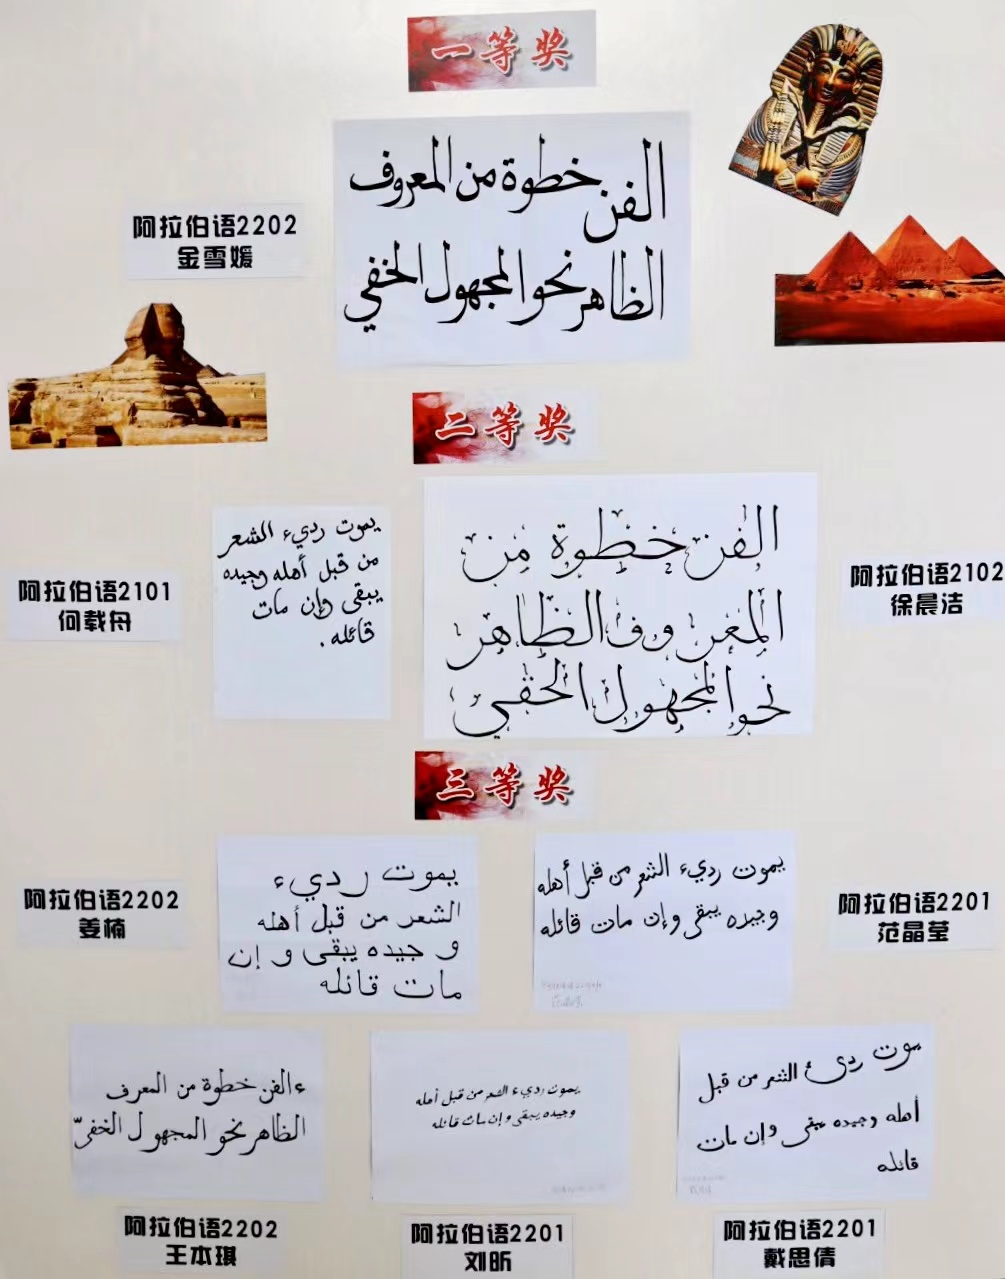 一等奖
الفن خطوة من المعروف
الظاهر نحو المجهول الخفي
阿拉伯语2202
金雪媛
二等奖
يموت رديء الشعر
من قبل أهله وجيده
يبقى وإن مات
قائله.
阿拉伯语2101
何载舟
الفن خطوة من
المعروف الظاهر
نحو المجهول الخفي
阿拉伯语2102
徐晨洁
三等奖
يموت رديء
الشعر من قبل أهله
و جيده يبقى و إن
مات قائله
阿拉伯语2202
姜楠
يموت رديء الشعر من قبل أهله
وجيده يبقى وإن مات قائله
阿拉伯语2201
范晶莹
ءالفن خطوة من المعرف
الظاهر نحو المجهول الخفيّ
阿拉伯语2202
王本琪
يموت رديء الشعر من قبل أهله
وجيده يبقى وإن مات قائله
阿拉伯语2201
刘昕
يموت ردئ الشعر من قبل
أهله وجيده يبقى وإن مات
قائله
阿拉伯语2201
戴思倩